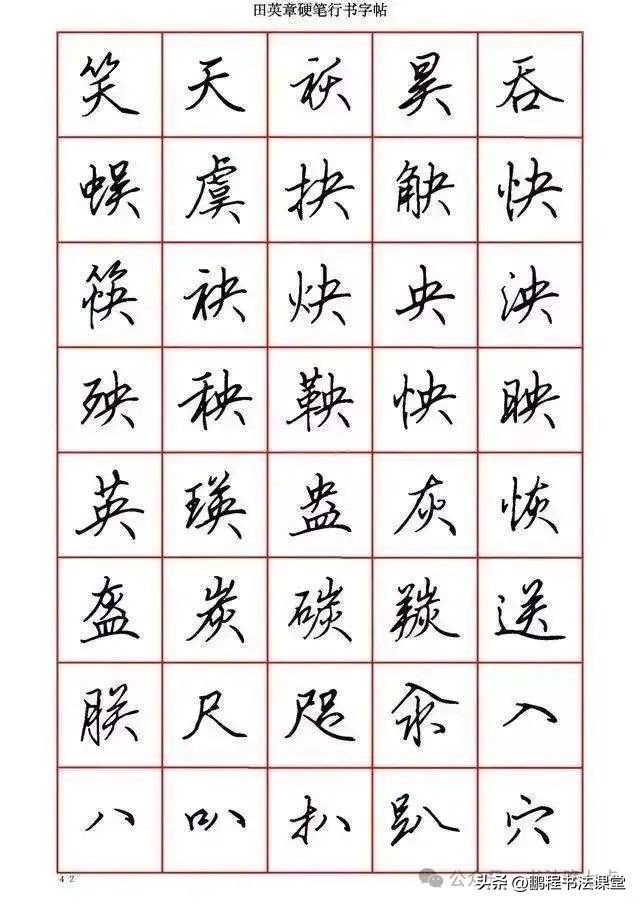 田英章硬笔行书字帖
笑 天 祆 昊 吞
蜈 虞 抉 觖 快
筷 袂 炔 央 泱
殃 秧 鞅 怏 映
英 瑛 盎 灰 恢
盔 炭 碳 羰 送
朕 尺 咫 汆 入
八 叭 扒 趴 穴
42
头条 @鹏程书法课堂